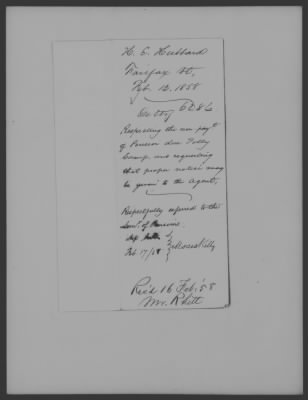 H. S. Hubbard
Fairfax Vt,
Feb. 12. 1858
6286
Respecting the non paymt
of Pension due Polly
and requesting
that proper notice may
be given to the Agent,
Respectfully referred to the
of Pensions.
Feb 17/58
Moses Kelly
Rec'd 16 Feb. '58
Mr. Rhett